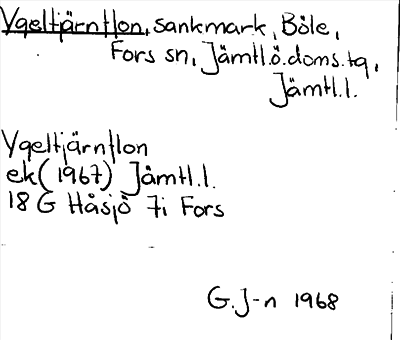 Vgeltjärnflon, sankmark, Böle,
Fors sn, Jämtl.ö.doms.tg,
Jämtl.l.
Vgeltjärnflon
ek (1967) Jämtl.l.
18 G Håsjö 7i Fors
G.J-n 1968